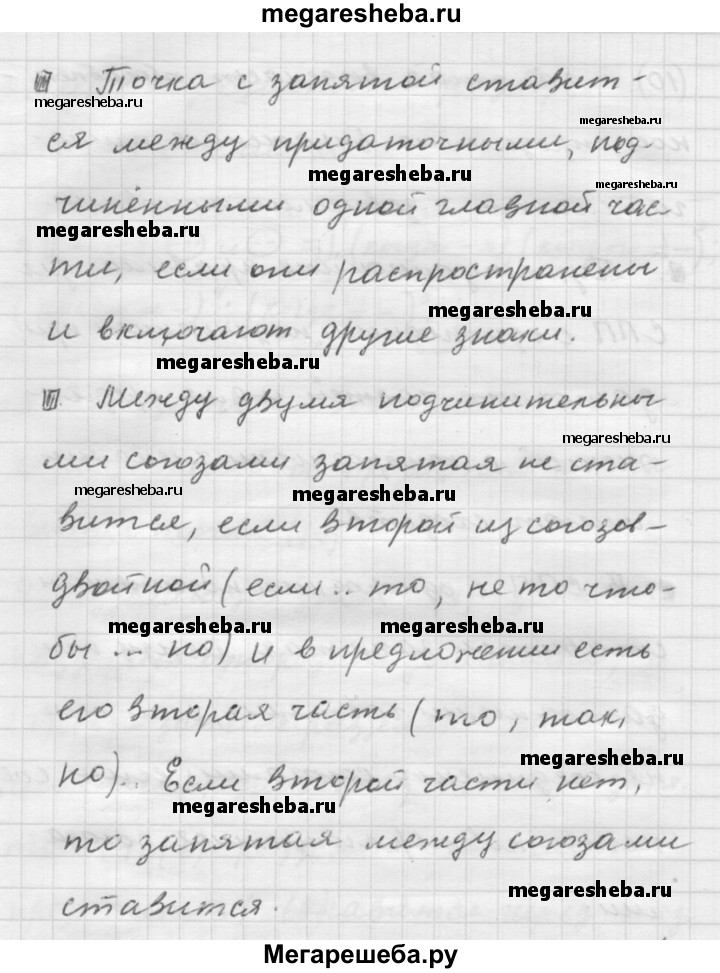 megaresheba.ru
Точка с запятой ставит-
megaresheba.ru
megaresheba.ru
ся между придаточными, под-
megaresheba.ru
megaresheba.ru
чинёнными одной главной час-
megaresheba.ru
ти, если они распространены
megaresheba.ru
и включают другие знаки.
megaresheba.ru
Между двумя подчинительны
megaresheba.ru
ми союзами запятая не ста-
megaresheba.ru
megaresheba.ru
вится, если второй из союзов-
двойной (если.. то, не то что-
megaresheba.ru
megaresheba.ru
бы ... но) и в предложении есть
его вторая часть (то, так,
megaresheba.ru
но).. Если второй части нет,
megaresheba.ru
то запятая между союзами
megaresheba.ru
ставится.
Мегарешеба.ру